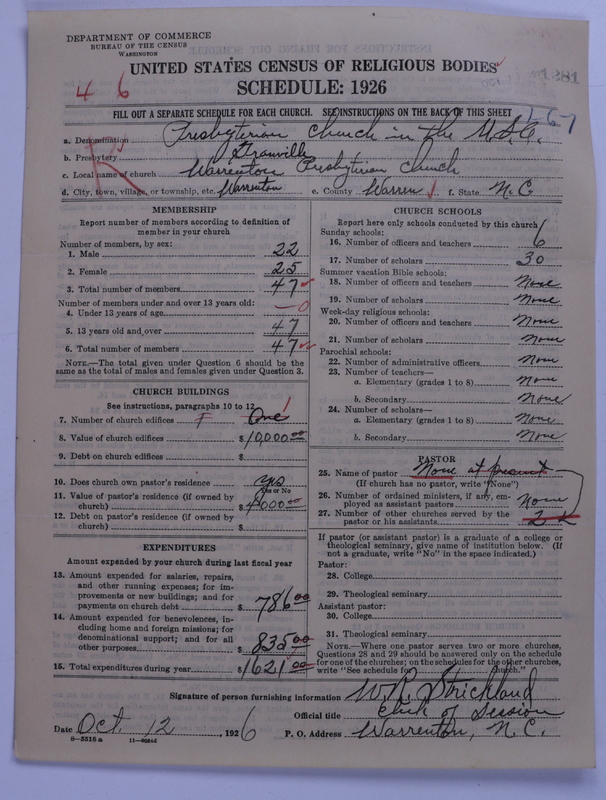 DEPARTMENT OF COMMERCE
BUREAU OF THE CENSUS
WASHINGTON
1281
UNITED STATES CENSUS OF RELIGIOUS BODIES
4 6
SCHEDULE: 1926
FILL OUT A SEPARATE SCHEDULE FOR EACH CHURCH. SEE INSTRUCTIONS ON THE BACK OF THIS SHEET
167
a. Denomination Presbyterian Church in the U.S.A.
b. Presbytery Granville
c. Local name of church Warrenton Presbyterian Church
d. City, town, village, or township, etc. Warrenton e. County Warren f. State N.C.
MEMBERSHIP
Report number of members according to definition of member in your church
Number of members, by sex:
1. Male 22
2. Female 25
3. Total number of members 47
Number of members under and over 13 years old:
4. Under 13 years of age —0
5. 13 years old and over 47
6. Total number of members 47
NOTE.—The total given under Question 6 should be the
same as the total of males and females given under Question 3.
CHURCH BUILDINGS
See instructions, paragraphs 10 to 12
7. Number of church edifices One 1
8. Value of church edifices $10,000.00
9. Debt on church edifices $
10. Does church own pastor's residence yes
Yes or No
11. Value of pastor's residence (if owned by
church) $4000.00
12. Debt on pastor's residence (if owned by
church) $
EXPENDITURES
Amount expended by your church during last fiscal year
13. Amount expended for salaries, repairs,
and other running expenses; for im-
provements or new buildings; and for
payments on church debt $ 786.00
14. Amount expended for benevolences, in-
cluding home and foreign missions; for
denominational support; and for all
other purposes $ 835.00
15. Total expenditures during year $1621.00
CHURCH SCHOOLS
Report here only schools conducted by this church
Sunday schools:
16. Number of officers and teachers 6
17. Number of scholars 30
Summer vacation Bible schools:
18. Number of officers and teachers None
19. Number of scholars None
Week-day religious schools:
20. Number of officers and teachers None
21. Number of scholars None
Parochial schools:
22. Number of administrative officers None
23. Number of teachers—
a. Elementary (grades 1 to 8) None
b. Secondary None
24. Number of scholars—
a. Elementary (grades 1 to 8) None
b. Secondary None
PASTOR
25. Name of pastor None at present
(If church has no pastor, write "None")
26. Number of ordained ministers, if any, em-
ployed as assistant pastors None
27. Number of other churches served by the
pastor or his assistants
If pastor (or assistant pastor) is a graduate of a college or
theological seminary, give name of institution below. (If
not a graduate, write "No" in the space indicated.)
Pastor:
28. College
29. Theological seminary
Assistant pastor:
30. College
31. Theological seminary
NOTE.—Where one pastor serves two or more churches,
Questions 28 and 29 should be answered only on the schedule
for one of the churches; on the schedules for the other churches,
write "See schedule for church."
Signature of person furnishing information W.R. Strickland
Official title Clerk of Session
Date Oct. 12, 1926 P. O. Address Warrenton, N.C.
8—5518a